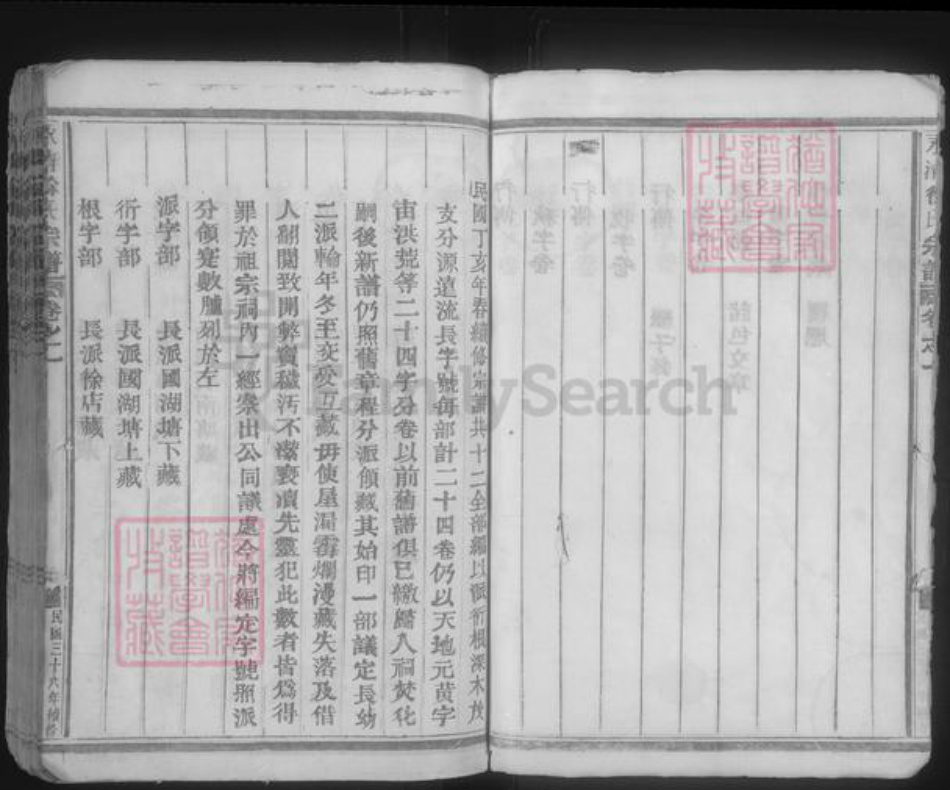 民國丁亥年春續修宗譜共十二全部編以派衍根深木茂
支分源遠流長字號每部計二十四卷仍以天地元黄字
宙洪荒等二十四字分卷以前舊譜俱已繳歸入祠焚化
嗣後新譜仍照舊章程分派領藏其始印一部議定長幼
二派輪年冬至交受互藏毋使屋漏霉爛漫藏失落及借
人翻閱致開弊竇穢汚不潔褻瀆先靈犯此數者皆爲得
罪於祖宗祠內一經察出公同議處今將編定字號照派
分領定數臚列於左
派字部 長派國湖塘下藏
衍字部 長派國湖塘上藏
根字部 長派徐店藏
宗譜 卷之一
民國三十六年續修
FamilySearch